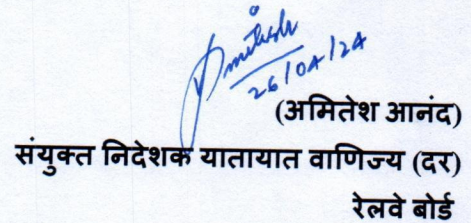 26/04/24
(अमितेश आनंद)
संयुक्त निदेशक यातायात वाणिज्य (दर)
रेलवे बोर्ड